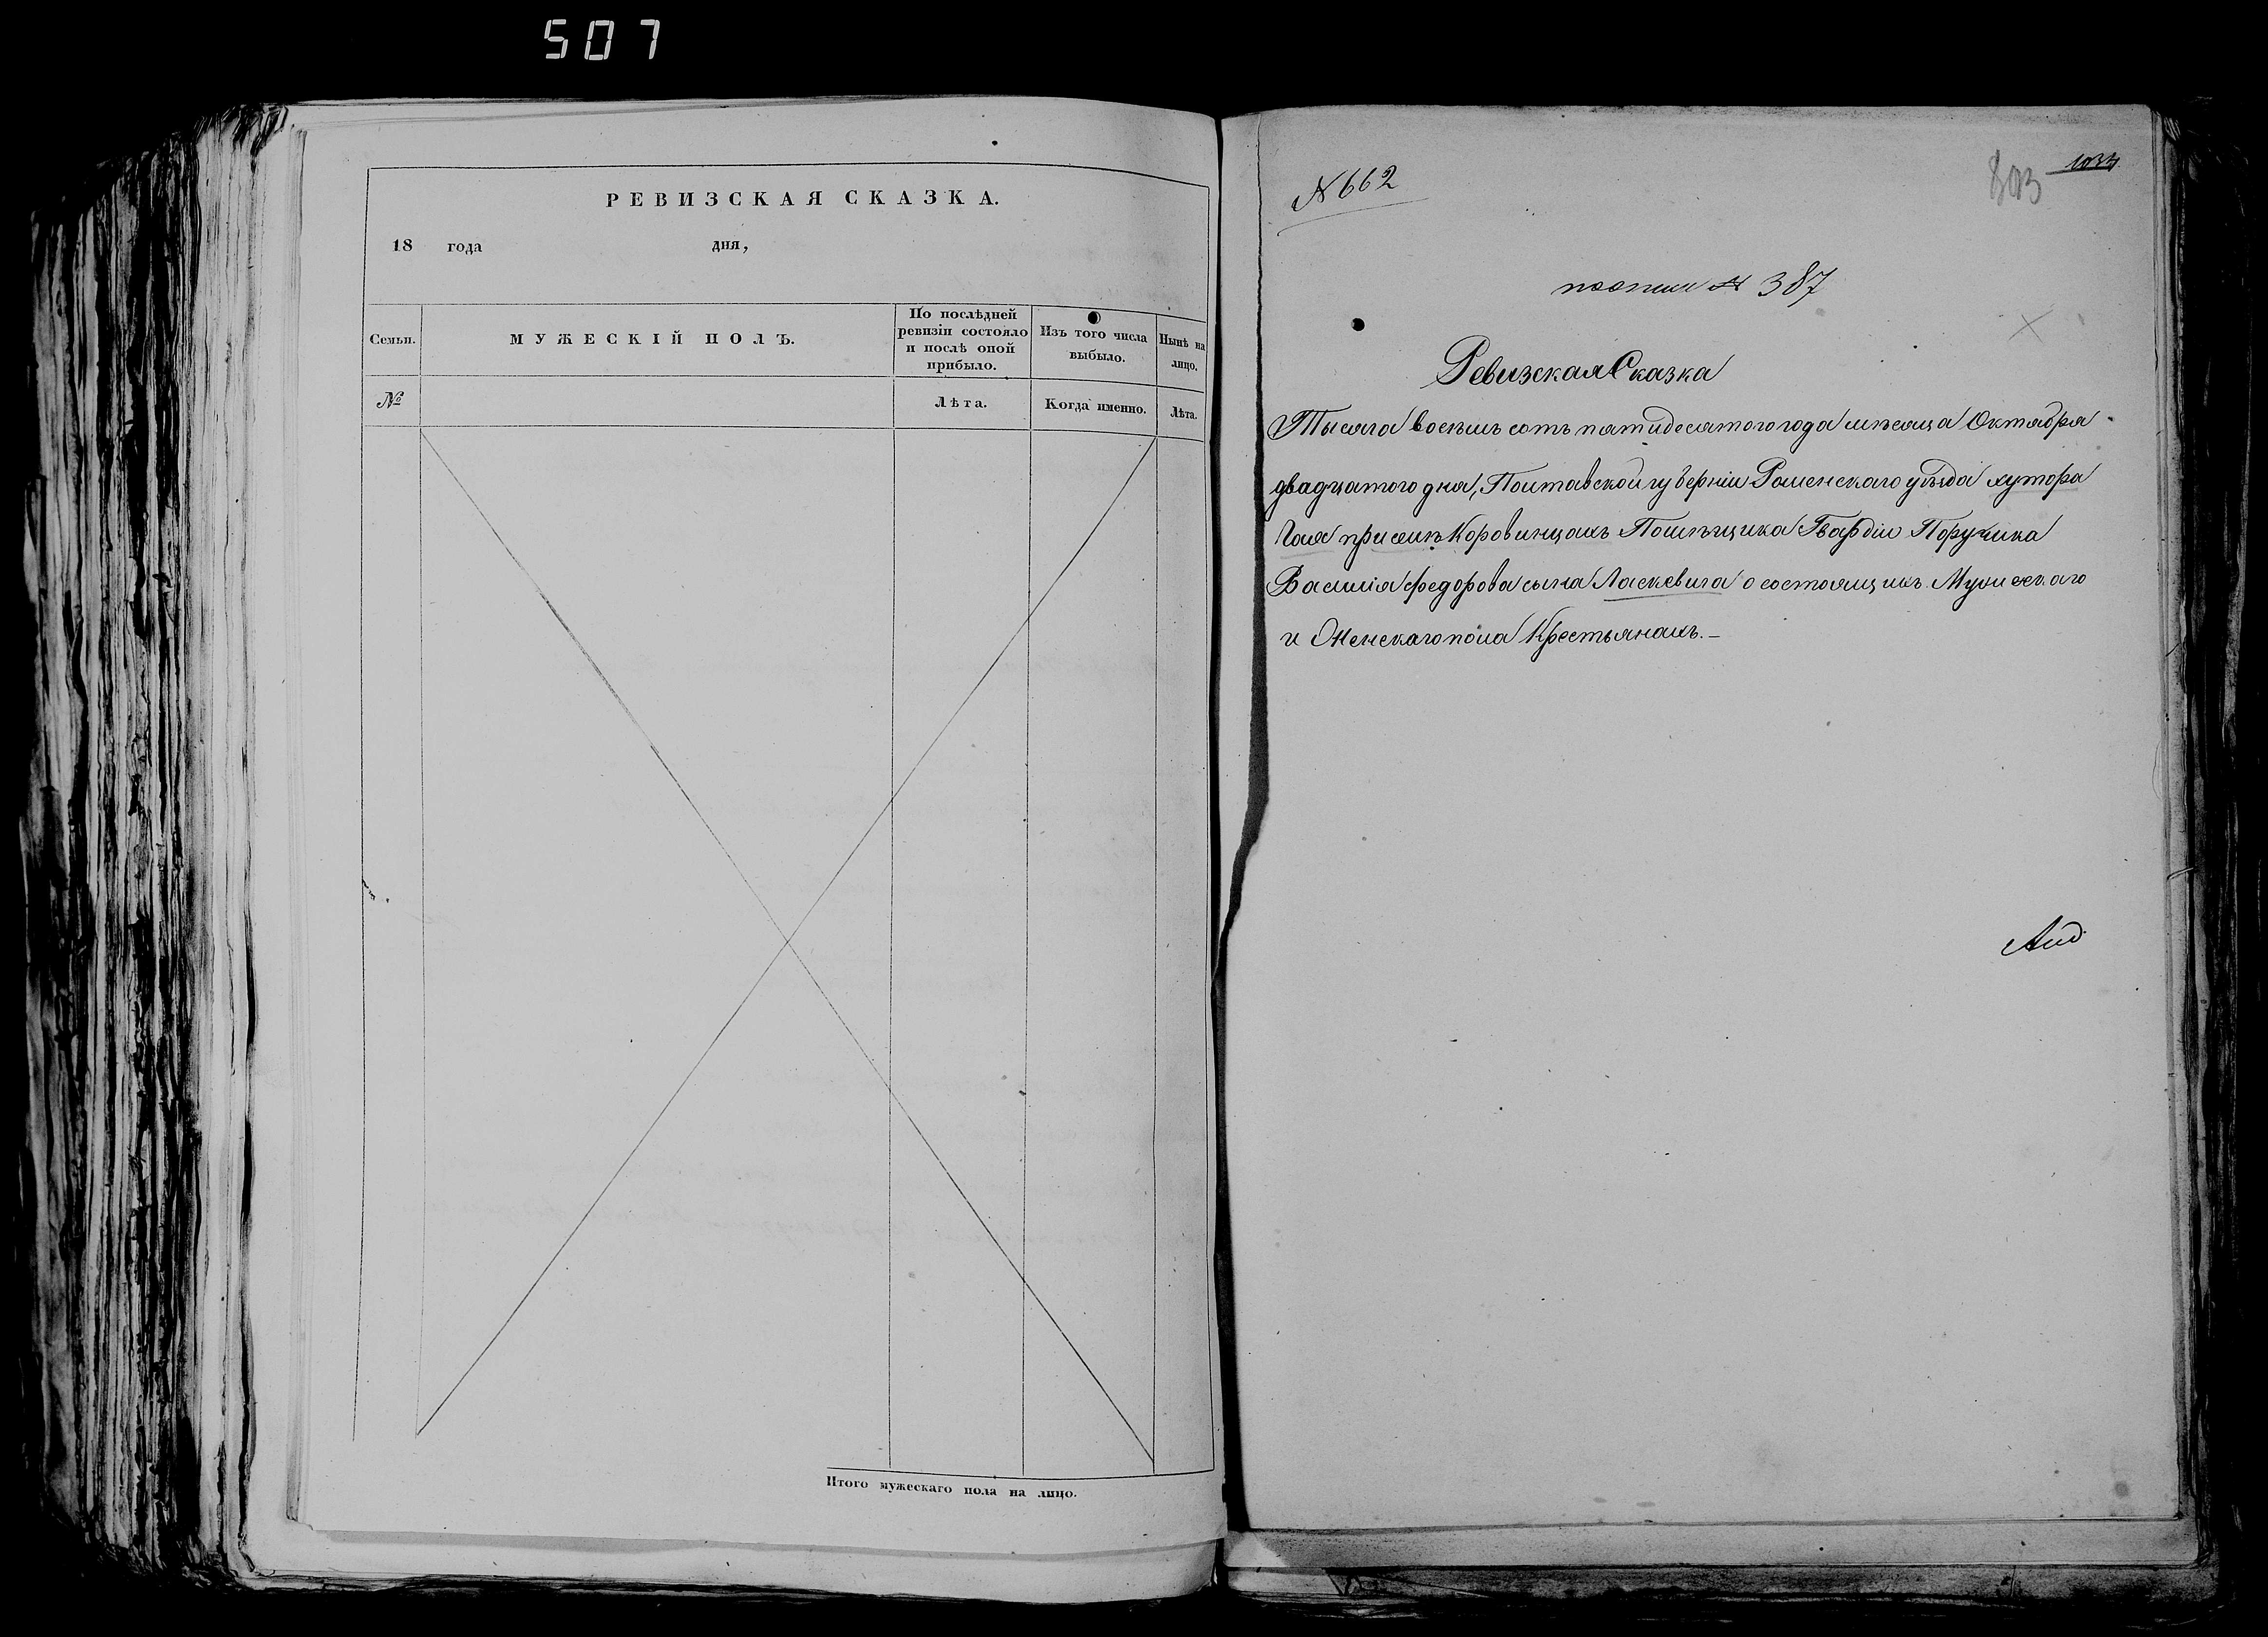 507
РЕВИЗСКАЯ СКАЗКА.
18 года дня,
Семьи.
МУЖЕСКІЙ ПОЛЪ.
По послѣдней ревизіи состояло и послѣ оной прибыло.
Изъ того числа выбыло.
Нынѣ на лицо.
№
Лѣта.
Когда именно.
Лѣта.
Итого мужескаго пола на лицо.
N 662
803
1034
№ 387
Ревизская Сказка
Тысяча восемь сотъ пятидесятого года мѣсяца Октября
двадцатого дня, Полтавской губерніи Роменскаго уѣзда хутора
при селѣ Коровинцахъ Помѣщика Гвардіи Поручика
Василія Федорова сына Ласкевича о состоящихъ Мужескаго
и Женскаго пола Крестьянахъ.-